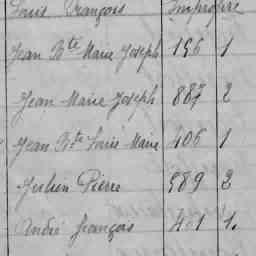 Louis François Impropre
Jean Bte Marie Joseph 196 1
Jean Marie Joseph 887 2
Jean Bte Louis Marie 406 1
Julien Pierre 589 2
André François 401 1.